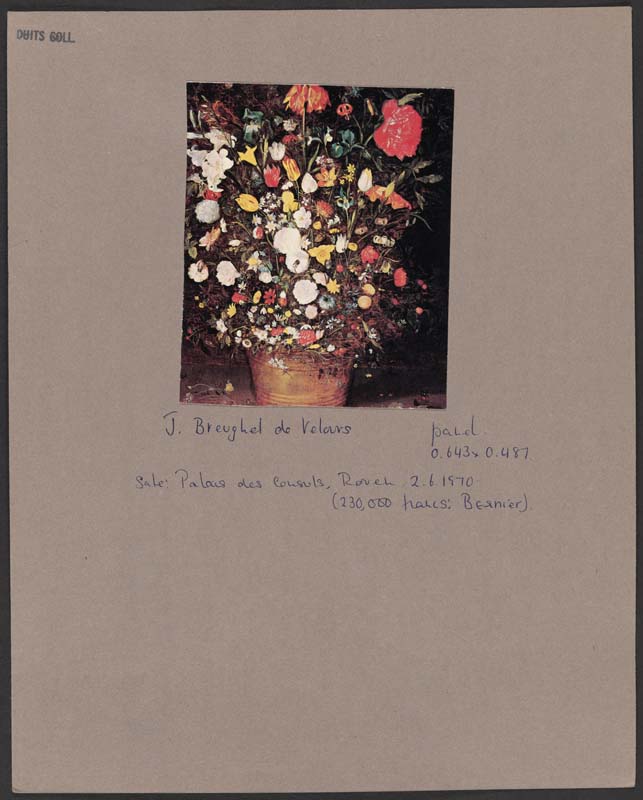 DUITS COLL.
J. Breughel de Velours
panel.
0.643 x 0.487
Sale: Palais des Consuls, Rouen 2.6.1970
(230,000 francs: Bernier)